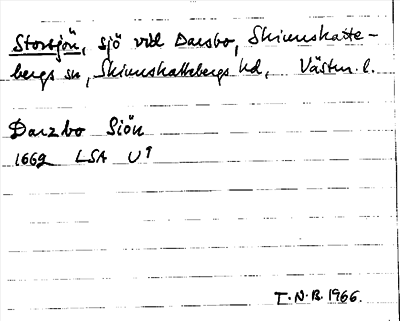 Storsjön, sjö vid Darsbo, Skinnskatte-
bergs sn, Skinnskattebergs hd, Västm. l.
Darzbo Siön
1662 LSA U 1
T.N.B. 1966.